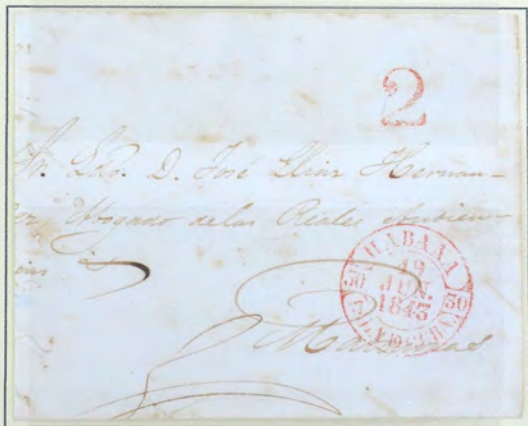 2
Sr. Ldo. D. José Elias Hernan-
dez Abogado de las Reales Audien-
cias
HABANA
19
JUN.
1843
50
50
Matanzas